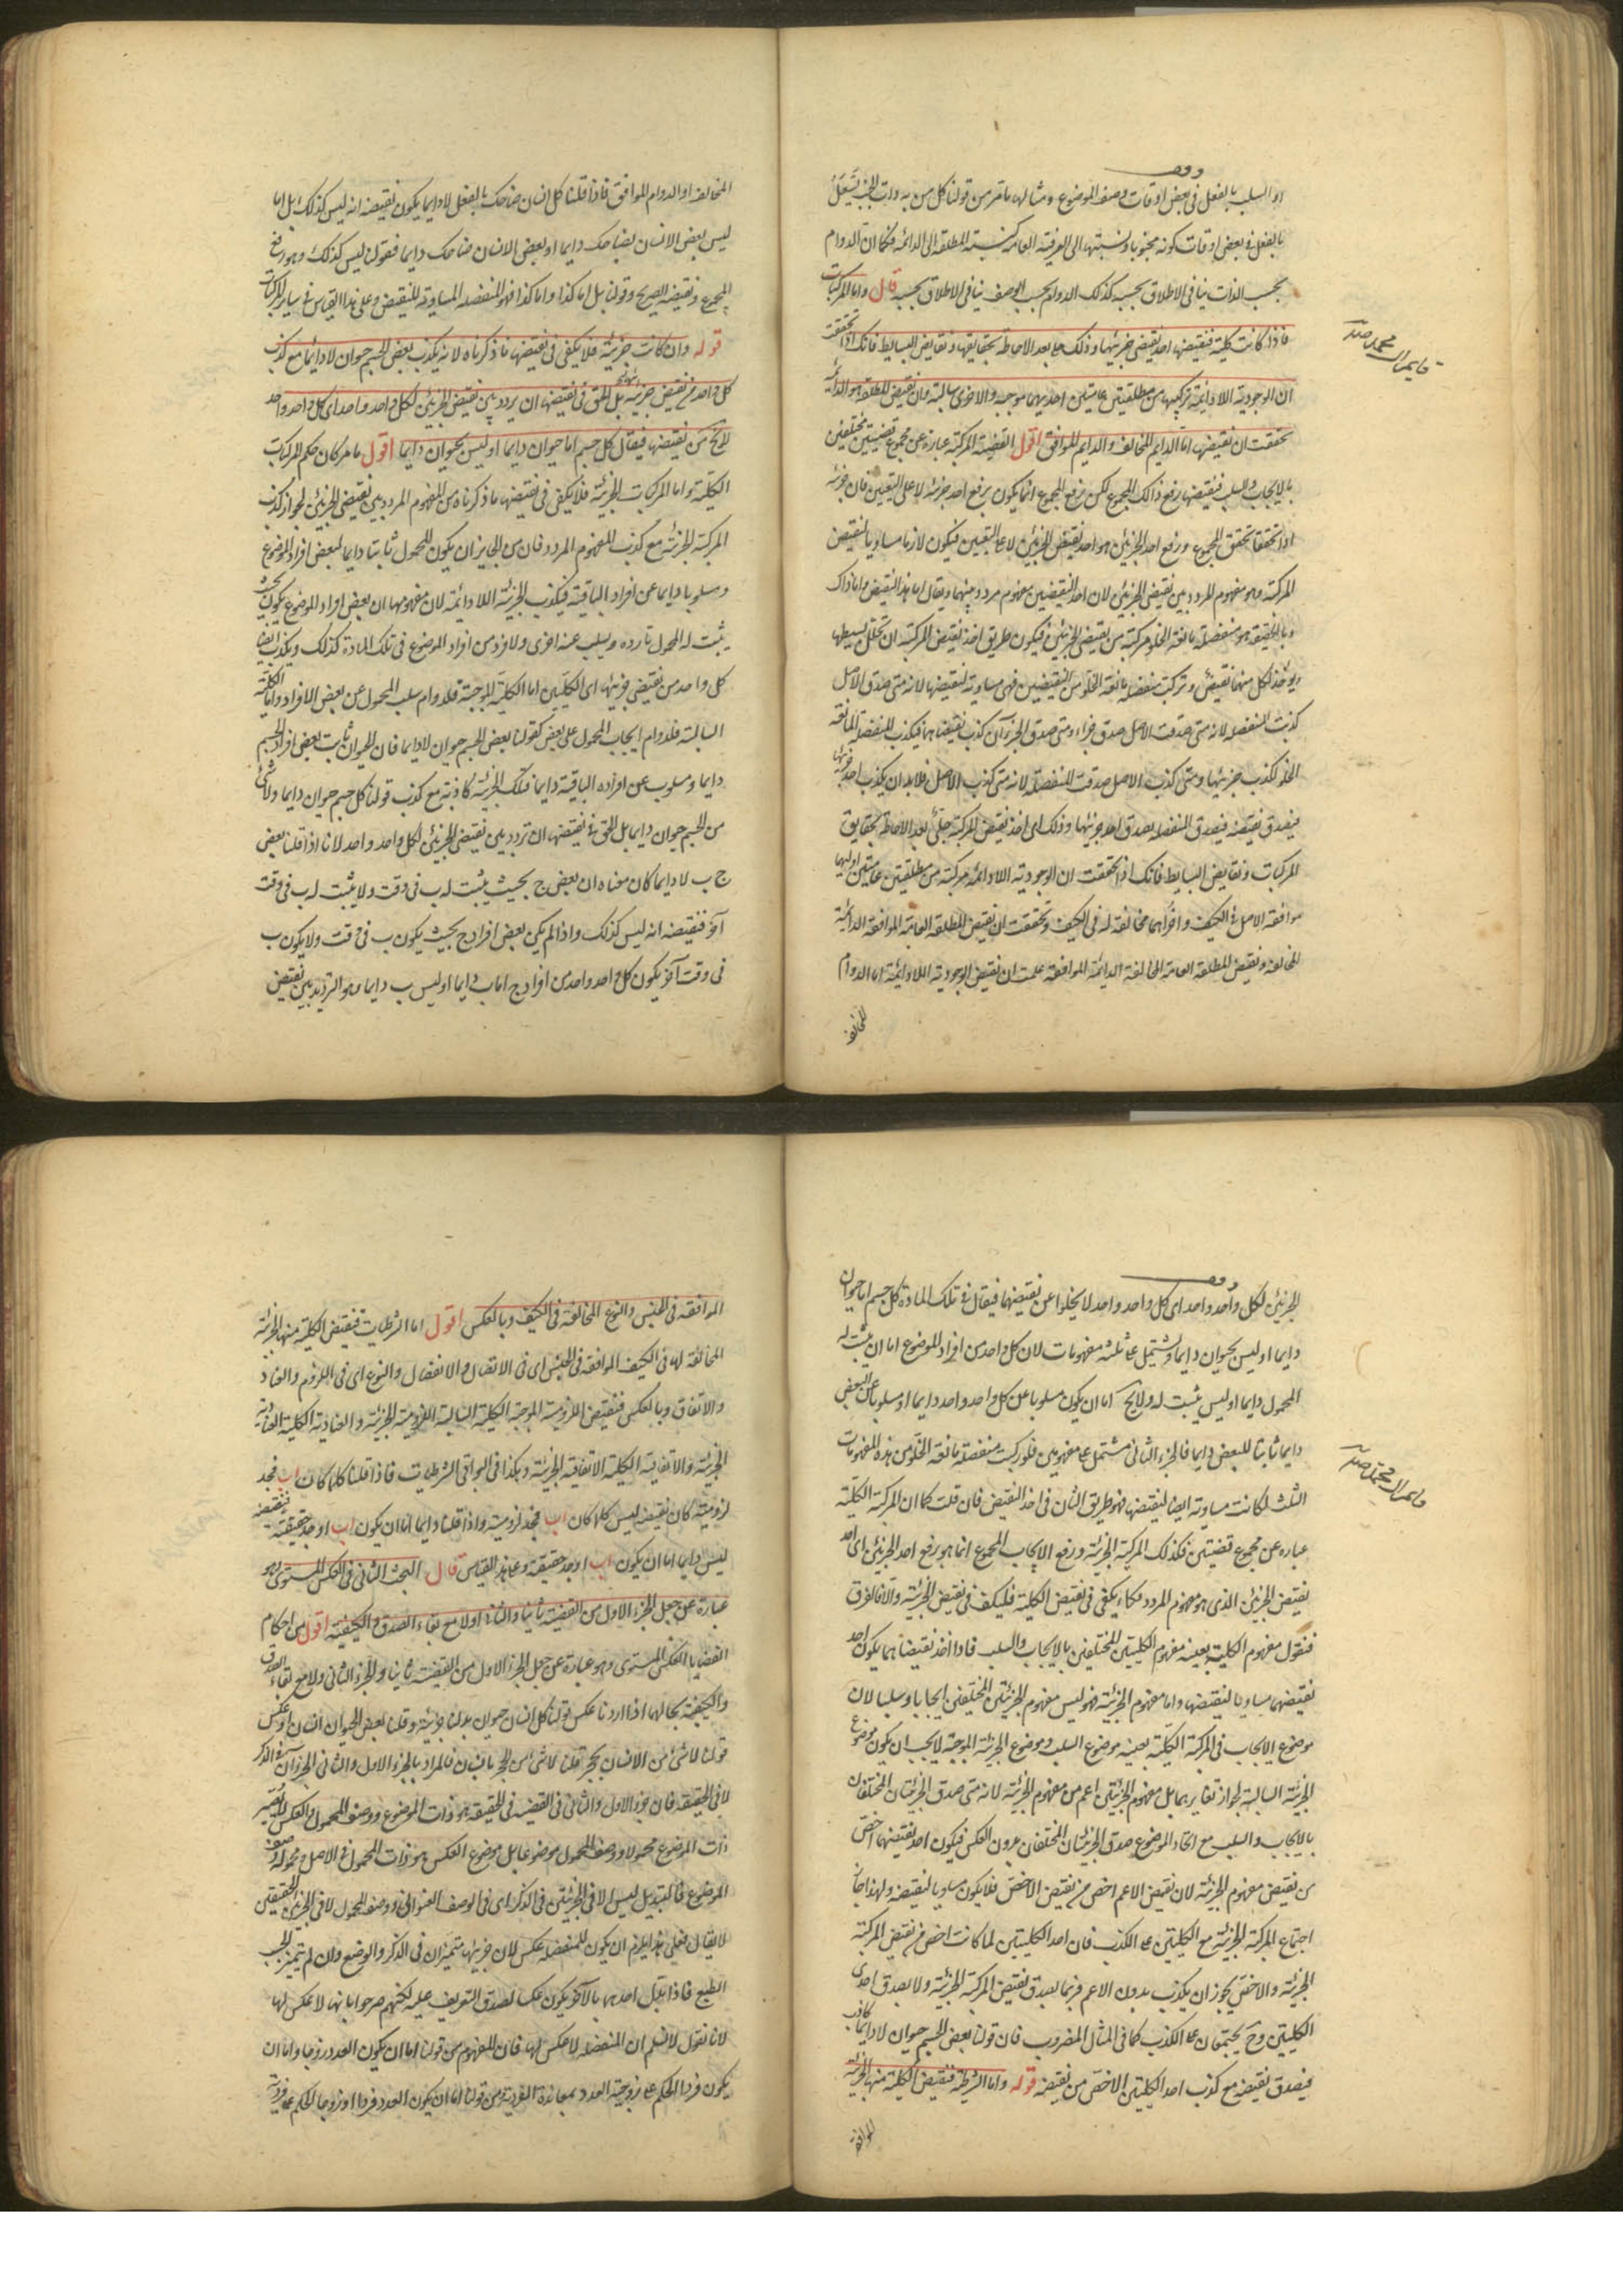 وقف
او السلب بالفعل فى بعض اوقات وصف الموضوع ومثالها ما مر من قولنا كل من به ذات الجنب يسعل
بالفعل فى بعض اوقات كونه مجنوبا ونسبتها الى العرفية العامة كنسبة المطلقة الى الدائمة فكما ان الدوام
بحسب الذات ينافى الاطلاق بحسبه كذلك الدوام بحسب الوصف ينافى الاطلاق بحسبه قال واما المركبات
فاذا كانت كلية فنقيضها احد نقيضى جزئيها وذلك جلى بعد الاحاطة بحقايقها ونقايض البسايط فانك اذا تحققت
ان الوجودية اللادائمة تركيبها من مطلقتين عامتين احديهما موجبة والاخرى سالبة وان نقيض المطلقة هو الدائمة
تحققت ان نقيضها اما الدايم المخالف والدايم الموافق اقول القضية المركبة عبارة عن مجموع قضيتين مختلفتين
بالايجاب والسلب فنقيضها رفع ذلك المجموع لكن رفع المجموع انما يكون برفع احد جزئيه لا على التعيين فان جزئيه
اذا تحققا تحقق المجموع ورفع احد الجزئين هو احد نقيضى الجزئين لا على التعيين فيكون لازما مساويا لنقيض
المركبة وهو مفهوم المردد بين نقيضى الجزئين لان احد النقيضين مفهوم مردد بينهما ويقال اما هذا النقيض واما ذاك
وبالحقيقة هو منفصلة مانعة الخلو مركبة من نقيضى الجزئين فيكون طريق اخذ نقيض المركبة ان تحلل بسيطها
ويؤخذ لكل منهما نقيض وتركب منفصلة مانعة الخلو من النقيضين فهى مساوية لنقيضها لانه متى صدق الاصل
كذبت المنفصلة لانه متى صدقت الاصل صدق جزاءه ومتى صدق الجزءآن كذب نقيضاهما فيكذب المنفصلة المانعة
الخلو لكذب جزئيها ومتى كذب الاصل صدقت المنفصلة لانه متى كذب الاصل فلا بد ان يكذب احد جزئيه
فيصدق نقيضه فيصدق المنفصلة بصدق احد جزئيها وذلك اى اخذ نقيض المركبة جلى بعد الاحاطة بحقايق
المركبات ونقايض البسايط فانك اذا تحققت ان الوجودية اللادائمة مركبة من مطلقتين عامتين اوليهما
موافقة الاصل فى الكيف واخراهما مخالفة له فى الكيف وتحققت ان نقيض المطلقة العامة الموافقة الدائمة
المخالفة ونقيض المطلقة العامة المخالفة الدائمة الموافقة علمت ان نقيض الوجودية اللادائمة اما الدوام
المخالف
المخالفة او الدوام الموافق فاذا قلنا كل انسان ضاحك بالفعل لادايما يكون نقيضه انه ليس كذلك بل اما
ليس بعض الانسان بضاحك دايما او بعض الانسان ضاحك دايما فقولنا ليس كذلك وهو رفع
المجموع ونقيضه الصريح وقولنا بل اما كذا واما كذا فهو المنفصلة المساوية للنقيض وعلى هذا القياس فى ساير المركبات
قوله وان كانت جزئية فلا يكفى فى نقيضها ما ذكرناه لانه يكذب بعض الجسم حيوان لادائما مع كذب
كل واحد من نقيضى جزئيه بل الحق فى نقيضها ان يردد بين نقيضى الجزئين لكل واحد واحد اى كل واحد واحد
لا يخ من نقيضها فيقال كل جسم اما حيوان دايما او ليس بحيوان دايما اقول ما مر كان حكم المركبات
الكلية واما المركبات الجزئية فلا يكفى فى نقيضها ما ذكرناه من المفهوم المردد بين نقيضى الجزئين لجواز كذب
المركبة الجزئية مع كذب المفهوم المردد فان من الجايز ان يكون المحمول ثابتا دايما لبعض افراد الموضوع
ومسلوبا دايما عن افراد الباقية فيكذب الجزئية اللادائمة لان مفهومها ان بعض افراد الموضوع يكون بحيث
يثبت له المحمول تارة ويسلب عنه اخرى ولا فرد من افراد الموضوع فى تلك المادة كذلك ويكذب ايضا
كل واحد من نقيضى جزئيها اى الكليتين اما الكلية الموجبة فلدوام سلب المحمول عن بعض الافراد واما الكلية
السالبة فلدوام ايجاب المحمول على بعض كقولنا بعض الجسم حيوان لادايما فان الحيوان ثابت بعض افراد الجسم
دايما ومسلوب عن افراده الباقية دايما فتلك الجزئية كاذبة مع كذب قولنا كل جسم حيوان دايما ولا شئ
من الجسم حيوان دايما بل الحق فى نقيضها ان تردد بين نقيضى الجزئين لكل واحد واحد لانا اذا قلنا بعض
ج ب لادايما كان معناه ان بعض ج بحيث يثبت له ب فى وقت ولا يثبت له ب فى وقت
آخر فنقيضه انه ليس كذلك واذا لم يكن بعض افراد ج بحيث يكون ب فى وقت ولا يكون ب
فى وقت آخر يكون كل واحد واحد من افراد ج اما ب دايما او ليس ب دايما وهو الترديد بين نقيضى
وقف
الجزئين لكل واحد واحد اى كل واحد واحد لا يخلوا عن نقيضهما فيقال فى تلك المادة كل جسم اما حيوان
دايما او ليس بحيوان دايما ويشتمل على ثلثة مفهومات لان كل واحد من افراد الموضوع اما ان يثبت له
المحمول دايما او ليس يثبت له ولا يخ اما ان يكون مسلوبا عن كل واحد واحد دايما او مسلوبا عن البعض
دايما ثابتا للبعض دايما فالجزء الثانى مشتمل على مفهومين فلو ركبت منفصلة مانعة الخلو من هذه المفهومات
الثلث لكانت مساوية ايضا لنقيضها فهو طريق الثان فى اخذ النقيض فان قلت كما ان المركبة الكلية
عبارة عن مجموع قضيتين فكذلك المركبة الجزئية ورفع الايجاب المجموع انما هو رفع احد الجزئين اى احد
نقيضى الجزئين الذى هو مفهوم المردد فكما يكفى فى نقيض الكلية فليكف فى نقيض الجزئية والا فالفرق
فنقول مفهوم الكلية بعينه مفهوم الكليتين المختلفتين بالايجاب والسلب فاذا اخذ نقيضاهما يكون احد
نقيضيهما مساويا لنقيضها واما مفهوم الجزئية فهو ليس مفهوم الجزئيتين المختلفتين ايجابا وسلبا لان
موضوع الايجاب فى المركبة الكلية بعينه موضوع السلب وموضوع الجزئية الموجبة لا يجب ان يكون موضوع
الجزئية السالبة لجواز تغايرهما بل مفهوم الجزئيتين اعم من مفهوم الجزئية لانه متى صدق الجزئيتان المختلفتان
بالايجاب والسلب مع اتحاد الموضوع صدق الجزئيتان المختلفتان بدون العكس فيكون احد نقيضيهما اخص
من نقيض مفهوم الجزئية لان نقيض الاعم اخص من نقيض الاخص فلا يكون مساويا لنقيضه ولهذا جاز
اجتماع المركبة الجزئية مع الكليتين على الكذب فان احد الكليتين لما كانت اخص من نقيض المركبة
الجزئية والاخص يجوز ان يكذب بدون الاعم فربما يصدق نقيض المركبة الجزئية ولا يصدق احدى
الكليتين وح يجتمعان على الكذب كما فى المثال المضروب فان قولنا بعض الجسم حيوان لادايما كاذب
فيصدق نقيضه مع كذب احد الكليتين الاخص من نقيضه قوله واما الشرطية فنقيض الكلية منها الجزئية
الموافقة
الموافقة فى الجنس والنوع المخالفة فى الكيف وبالعكس اقول اما الشرطيات فنقيض الكلية منها الجزئية
المخالفة لها فى الكيف الموافقة فى الجنس اى فى الاتصال والانفصال والنوع اى فى اللزوم والعناد
والاتفاق وبالعكس فنقيض اللزومية الموجبة الكلية السالبة اللزومية الجزئية والعنادية الكلية العنادية
الجزئية والاتفاقية الكلية الاتفاقية الجزئية وهكذا فى البواقى الشرطيات فاذا قلنا كلما كان اب فجد
لزومية كان نقيضه ليس كلما كان اب فجد لزومية واذا قلنا دايما اما ان يكون اب او جد حقيقية فنقيضه
ليس دايما اما ان يكون اب او جد حقيقية وعلى هذا القياس قال البحث الثانى فى العكس المستوى وهو
عبارة عن جعل الجزء الاول من القضية ثانيا والثانى اولا مع بقاء الصدق والكيفية اقول من احكام
القضايا العكس المستوى وهو عبارة عن جعل الجزء الاول من القضية ثانيا والجزء الثانى اولا مع بقاء الصدق
والكيفية بحالهما اذا اردنا عكس قولنا كل انسان حيوان بدلنا جزئيه وقلنا بعض الحيوان انسان او عكس
قولنا لا شئ من الانسان بحجر قلنا لا شئ من الحجر بانسان فالمراد بالجزء الاول والثانى الجزءآن فى الذكر
لا فى الحقيقة فان جزء الاول والثانى فى القضية فى الحقيقة هو ذات الموضوع ووصف المحمول والعكس لا يصير
ذات الموضوع محمولا ووصف المحمول موضوعا بل موضوع العكس هو ذات المحمول فى الاصل ومحموله وصف
الموضوع فالتبديل ليس الا فى الجزئين فى الذكر اى فى الوصف العنوانى ووصف المحمول لا فى الجزئين الحقيقيتين
لا يقال فعلى هذا يلزم ان يكون للمنفصلة عكس لان جزئيها متميزان فى الذكر والوضع وان لم يتميز بحسب
الطبع فاذا تبدل احدهما بالآخر يكون عكسا لصدق التعريف عليه لكنهم صرحوا بانها لا عكس لها
لانا نقول لا نسلم ان المنفصلة لا عكس لها فان المفهوم من قولنا اما ان يكون العدد زوجا واما ان
يكون فردا الحكم على زوجية العدد بمعاندة الفردية ومن قولنا اما ان يكون العدد فردا او زوجا الحكم على فردية